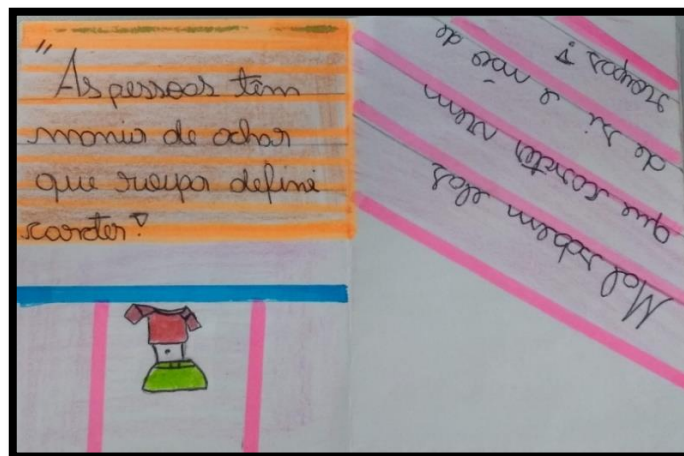 "As pessoas têm
mania de achar
que roupa define
caráter!
Mal sabem elas
que caráter vem
de si e não de
roupas!